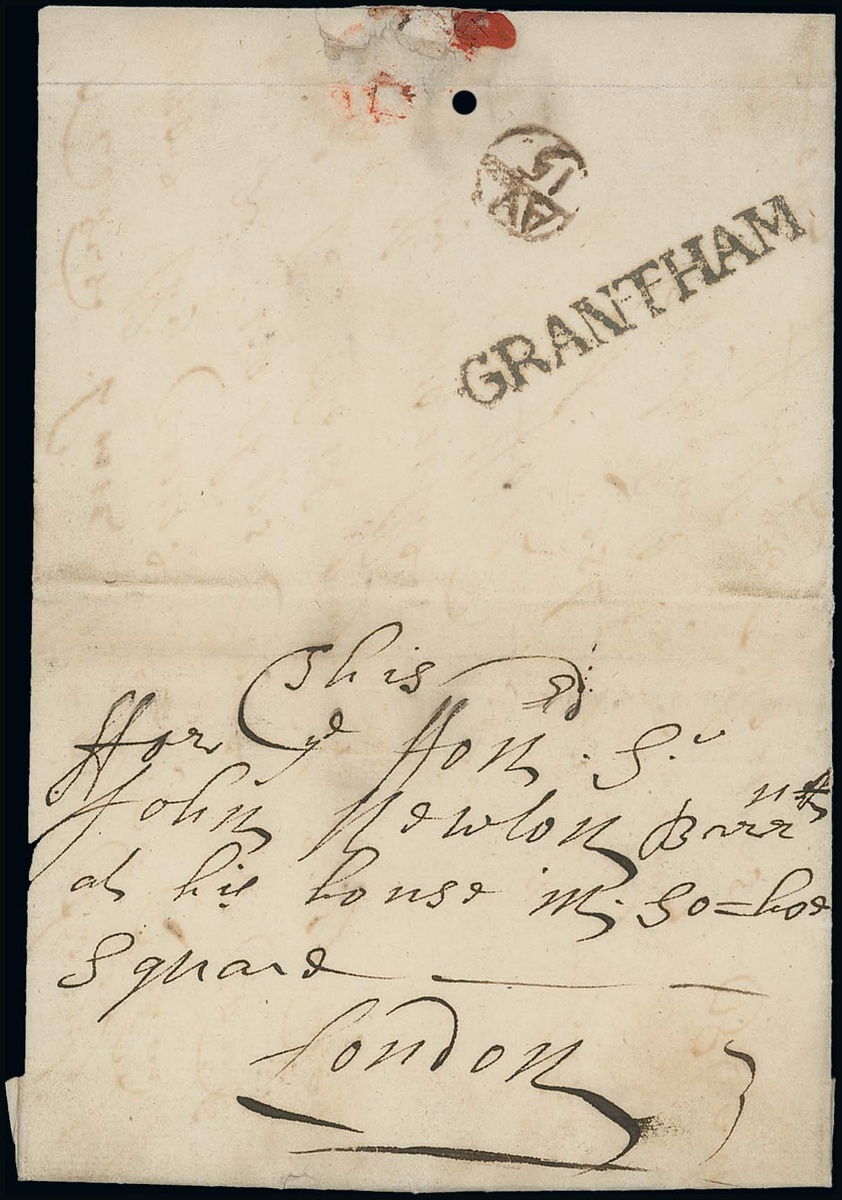 15
AV
GRANTHAM
This
ffor ye Honn. Sr
John Newton Barrnt
at his house in So=hoe
Square
London